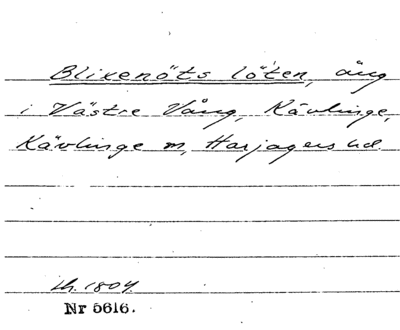 Blixenöts löten, äng
i Västre Vång, Kävlinge,
Kävlinge sn, Harjagers hd.
lh. 1804
Nr 5616.